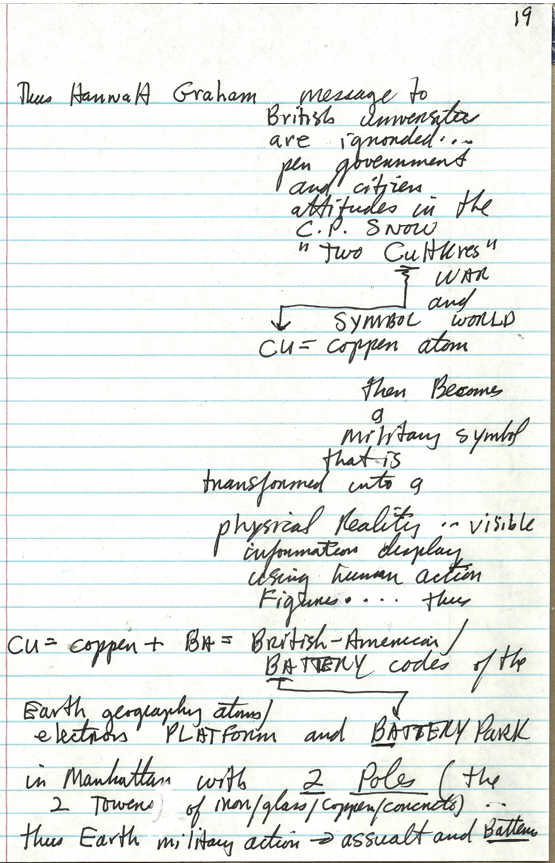 19
Thus HannaH Graham message to
British universities
are ignonded....
pen government
and citizen
attitudes in the
C.P. SNOW
"Two CultUres"
WAR
and
SYMBOL WORLD
CU = coppen atom
then Becomes
a
military symbol
that is
transformed into a
physical Reality .. visible
information display
using human action
Figures..... thus
CU = coppen + BA = British-American/
BATTERY codes of the
Earth geography atoms/
electrons PLATFORM and BATTERY PARK
in Manhattan with 2 Poles (the
2 Towens) of iron/glass/coppen/concrete) ..
thus Earth military action → assualt and Batteny